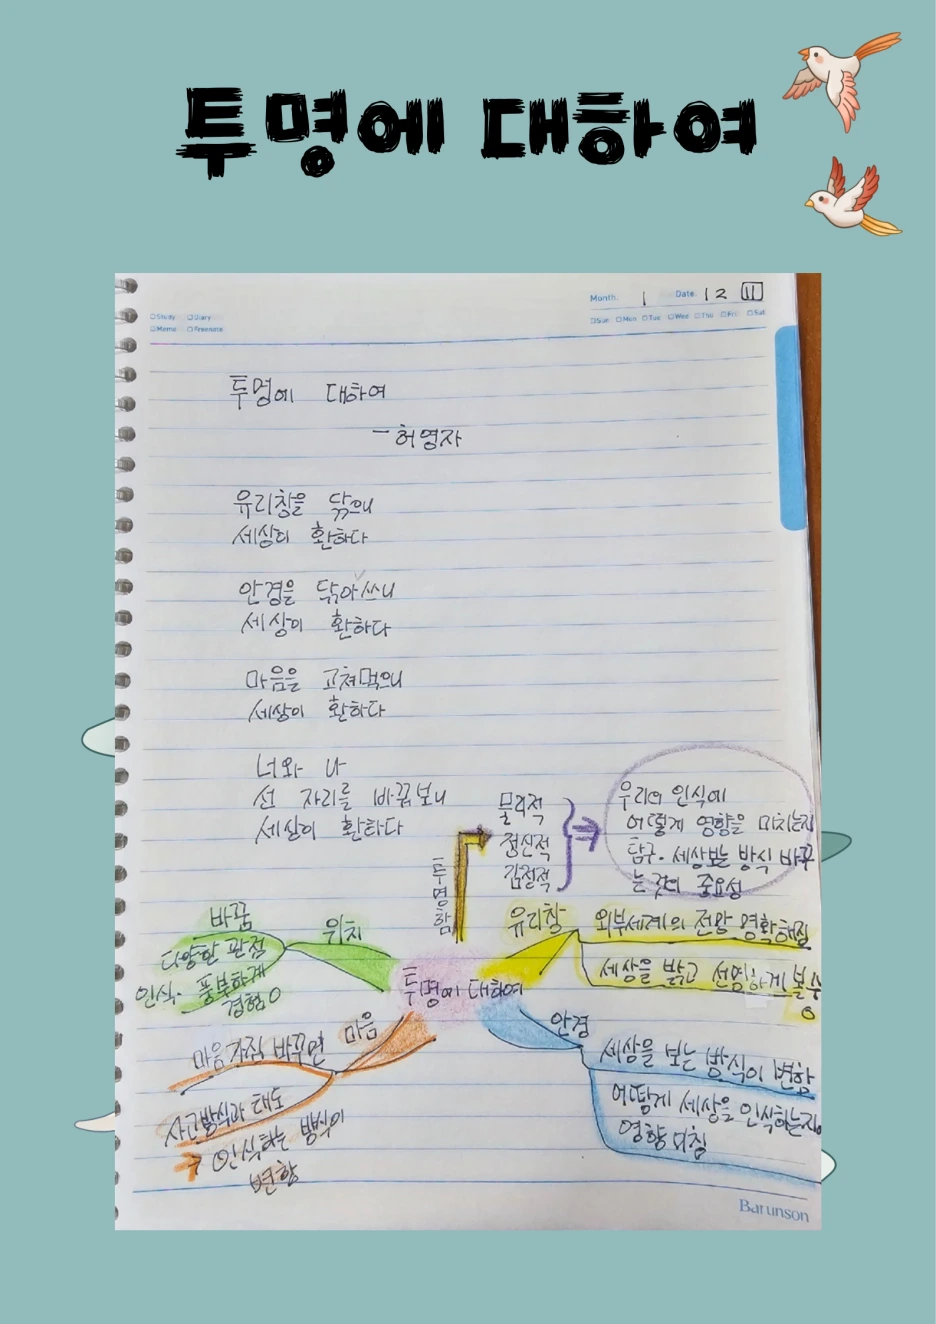 투명에 대하여
Month. 1 Date. 12 111
Study Diary
Memo Freenote
Sun Mon Tue Wed Thu Fri Sat
투명에 대하여
- 허영자
유리창을 닦으니
세상이 환하다
안경을 닦아 쓰니
세상이 환하다
마음을 고쳐먹으니
세상이 환하다
너와 나
선 자리를 바꿈보니
세상이 환하다
물리적
정신적
감절적
우리의 인식에
어떻게 영향을 미치는지
탐구. 세상보는 방식 바꾸
는 것의 중요성
투명함
유리창
외부세계의 전망 명확해짐
세상을 밝고 선명하게 볼 수
O
위치
바꿈
다양한 관점
인식. 풍부하게
경험 O
투명에 대하여
마음
마음가짐 바꾸면
사고방식과 태도
→ 인식하는 방식이
변향
안경
세상을 보는 방식이 변함
어떻게 세상을 인식하는지
영향 미침
Barunson